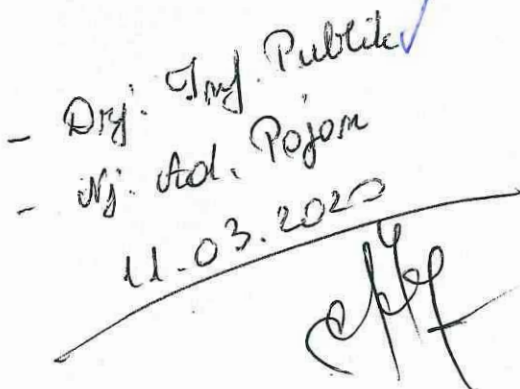 - Drj. Inf. Publik
- Nj. Ad. Pojan
11.03.2020